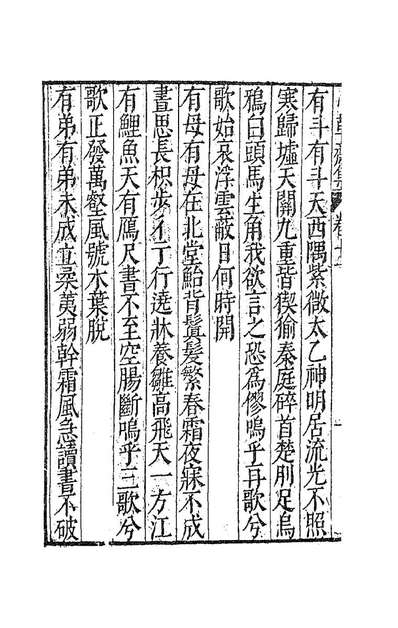 有斗有斗天西隅紫微太乙神明居流光不照
寒歸墟天關九重皆猰㺄秦庭碎首楚刖足烏
鴉白頭馬生角我欲言之恐為僇嗚乎再歌兮
歌始哀浮雲蔽日何時開
有母有母在北堂鮐背鬒髮繁春霜夜寐不成
晝思長枳步彳亍行遶牀養雛高飛天一方江
有鯉魚天有鴈尺書不至空腸斷嗚乎三歌兮
歌正發萬壑風號木葉脫
有弟有弟未成立桑荑弱幹霜風急讀書不破